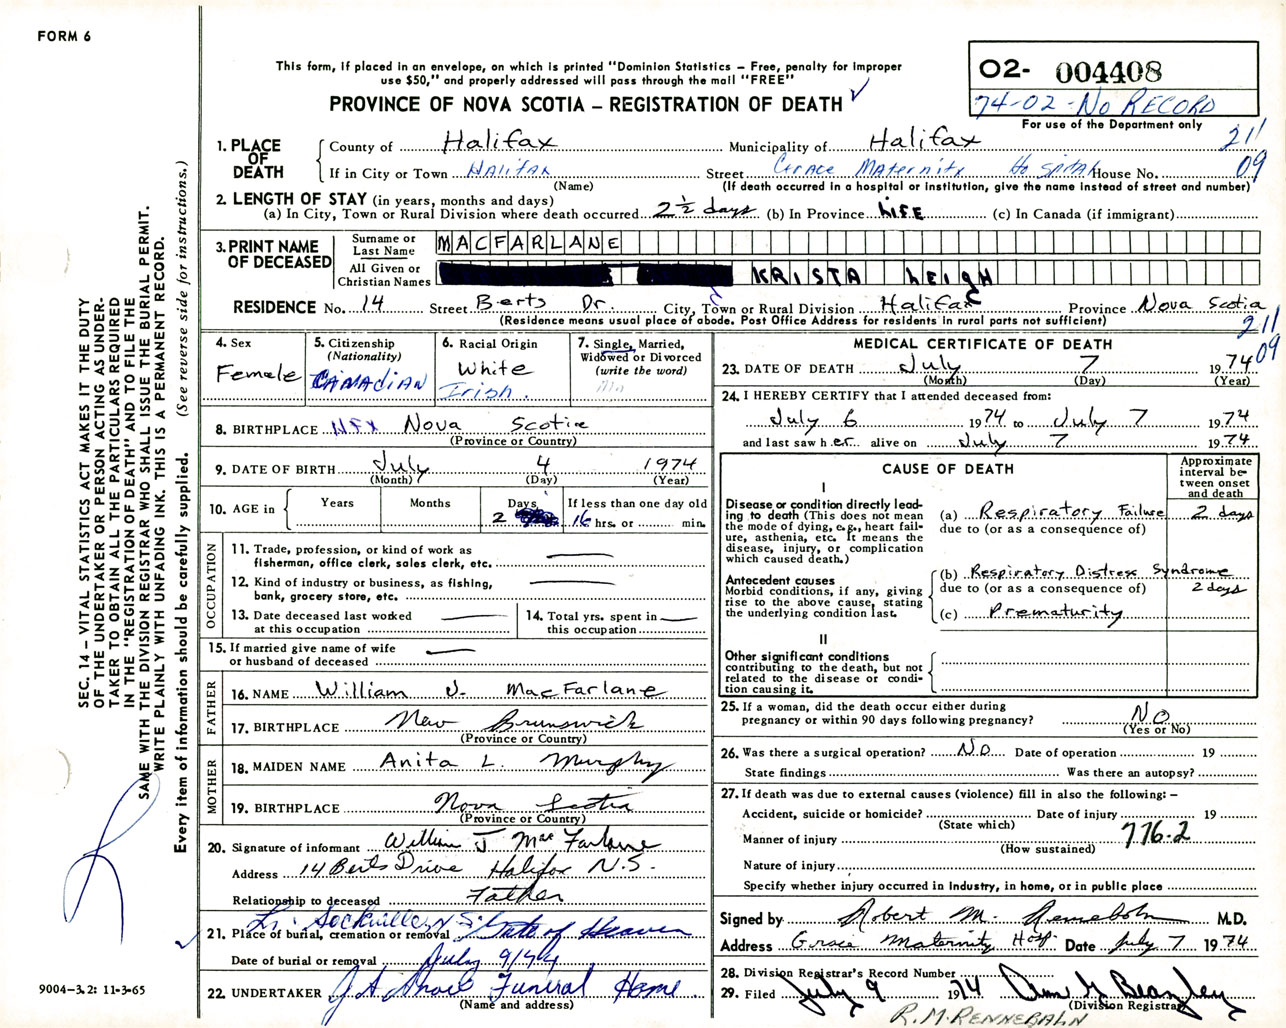 FORM 6
This form, if placed in an envelope, on which is printed "Dominion Statistics – Free, penalty for improper
use $50," and properly addressed will pass through the mail "FREE"
PROVINCE OF NOVA SCOTIA – REGISTRATION OF DEATH
O2- 004408
74-02-No RECORD
For use of the Department only
SEC. 14 – VITAL STATISTICS ACT MAKES IT THE DUTY
OF THE UNDERTAKER OR PERSON ACTING AS UNDER-
TAKER TO OBTAIN ALL THE PARTICULARS REQUIRED
IN THE "REGISTRATION OF DEATH" AND TO FILE THE
SAME WITH THE DIVISION REGISTRAR WHO SHALL ISSUE THE BURIAL PERMIT.
WRITE PLAINLY WITH UNFADING INK. THIS IS A PERMANENT RECORD.
Every item of information should be carefully supplied. (See reverse side for instructions.)
1. PLACE OF DEATH
County of Halifax Municipality of Halifax 21
If in City or Town Halifax Street Grace Maternity Hospital House No. 09
(Name) (If death occurred in a hospital or institution, give the name instead of street and number)
2. LENGTH OF STAY (in years, months and days)
(a) In City, Town or Rural Division where death occurred 2 ½ days (b) In Province LIFE (c) In Canada (if immigrant)
3. PRINT NAME OF DECEASED
Surname or Last Name MACFARLANE
All Given or Christian Names KRISTA LEIGH
RESIDENCE No. 14 Street Berts Dr. City, Town or Rural Division Halifax Province Nova Scotia
(Residence means usual place of abode. Post Office Address for residents in rural parts not sufficient)
21
09
4. Sex
Female
5. Citizenship
(Nationality)
Canadian
6. Racial Origin
White
Irish.
7. Single, Married,
Widowed or Divorced
(write the word)
8. BIRTHPLACE HFX Nova Scotia
(Province or Country)
9. DATE OF BIRTH July 4 1974
(Month) (Day) (Year)
10. AGE in Years Months Days If less than one day old
2 16 hrs. or min.
OCCUPATION
11. Trade, profession, or kind of work as
fisherman, office clerk, sales clerk, etc.
12. Kind of industry or business, as fishing,
bank, grocery store, etc.
13. Date deceased last worked
at this occupation
14. Total yrs. spent in
this occupation
15. If married give name of wife
or husband of deceased
FATHER
16. NAME William J. MacFarlane
17. BIRTHPLACE New Brunswick
(Province or Country)
MOTHER
18. MAIDEN NAME Anita L. Murphy
19. BIRTHPLACE Nova Scotia
(Province or Country)
20. Signature of informant William J MacFarlane
Address 14 Berts Drive Halifax N.S.
Relationship to deceased Father
Lr. Sackville, N.S.
21. Place of burial, cremation or removal Gate of Heaven
Date of burial or removal July 9/74
22. UNDERTAKER J A Snow Funeral Home.
(Name and address)
9004-3.2: 11-3-65
MEDICAL CERTIFICATE OF DEATH
23. DATE OF DEATH July 7 1974
(Month) (Day) (Year)
24. I HEREBY CERTIFY that I attended deceased from:
July 6 1974 to July 7 1974
and last saw her alive on July 7 1974
CAUSE OF DEATH
Approximate
interval be-
tween onset
and death
I
Disease or condition directly lead-
ing to death (This does not mean
the mode of dying, e.g., heart fail-
ure, asthenia, etc. It means the
disease, injury, or complication
which caused death.)
(a) Respiratory Failure 2 days
due to (or as a consequence of)
Antecedent causes
Morbid conditions, if any, giving
rise to the above cause, stating
the underlying condition last.
(b) Respiratory Distress Syndrome
due to (or as a consequence of) 2 days
(c) Prematurity
II
Other significant conditions
contributing to the death, but not
related to the disease or condi-
tion causing it.
25. If a woman, did the death occur either during
pregnancy or within 90 days following pregnancy? NO
(Yes or No)
26. Was there a surgical operation? NO Date of operation 19
State findings Was there an autopsy?
27. If death was due to external causes (violence) fill in also the following: –
Accident, suicide or homicide? Date of injury 19
(State which)
Manner of injury 776.2
(How sustained)
Nature of injury
Specify whether injury occurred in industry, in home, or in public place
Signed by Robert M. Rennebohm M.D.
Address Grace Maternity Hosp Date July 7 1974
28. Division Registrar's Record Number
29. Filed July 9 1974
(Division Registrar)
R.M. RENNEBAHN